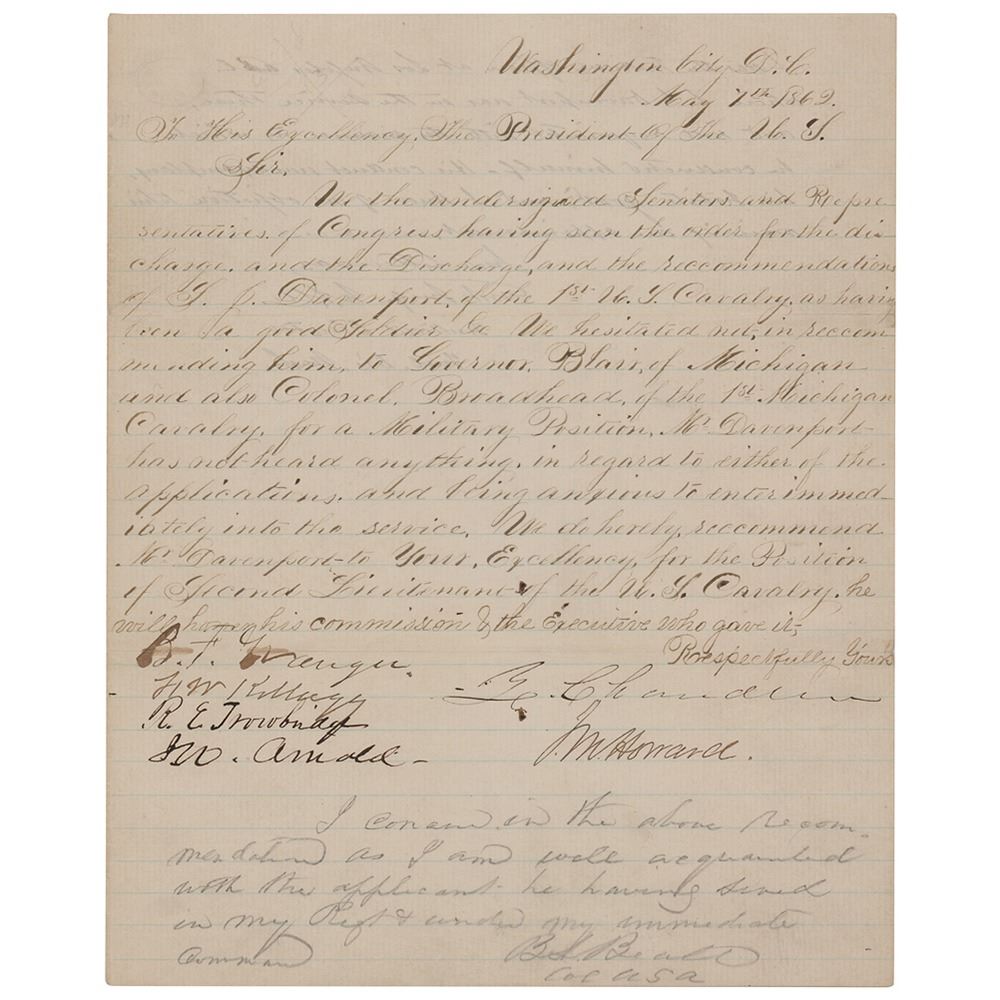 Washington City D. C.
May 7th 1862.
To His Excellency, The President Of The U. S.
Sir.
We the undersigned Senators and Repre-
sentatives, of Congress, having seen the order for the dis
charge, and the Discharge, and the reccommendations
of S. J. Davenport, of the 1st U. S. Cavalry, as having
been a good Soldier &c We hesitated not, in reccom
mending him, to Governor, Blair, of Michigan
and also Colonel, Broadhead, of the 1st Michigan
Cavalry, for a Military Position, Mr Davenport
has not heard anything, in regard to either of the
applications, and being anxious to enter immed-
iately into the service, We do hereby, reccommend
Mr Davenport to Your, Excellency, for the Position
of Second Lieutenant of the U. S. Cavalry. he
will honor his commission & the Executive who gave it,
Respectfully Yours
B. F. Granger
Z. Chandler
R. E. Trowbridge
J. M. Howard.
Arnold
I concur in the above recom-
mendation as I am well acquainted
with the applicant he having served
in my Regt & under my immediate
command
Col USA